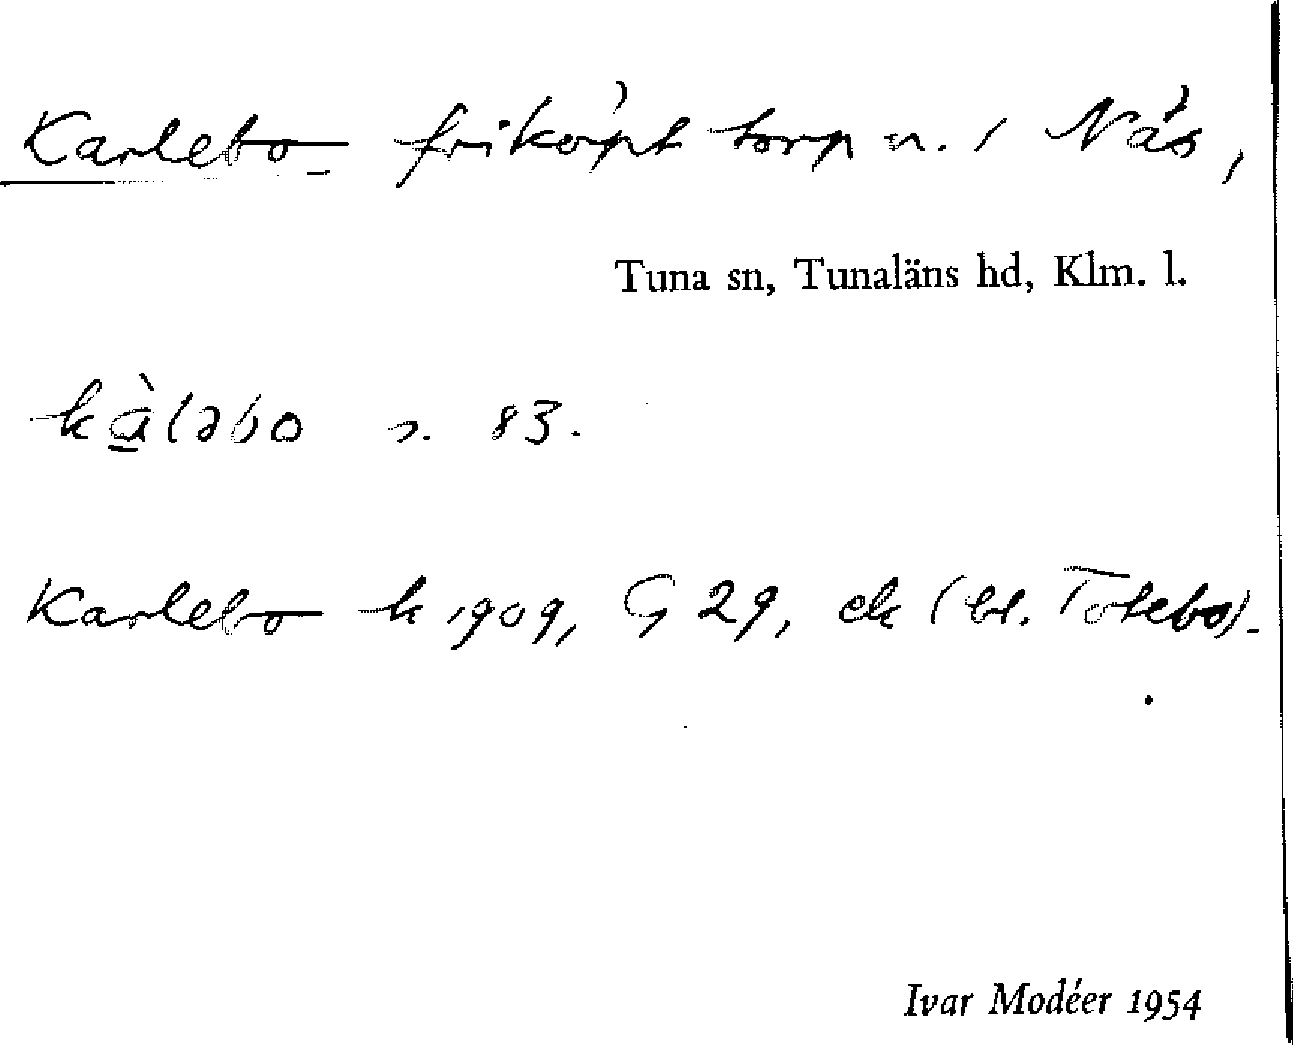 Karlebo friköpt torp u. 1 Näs,
Tuna sn, Tunaläns hd, Klm. l.
kàləbo s. 83.
Karlebo k 1909, G 29, ek (bl. Totebo).
Ivar Modéer 1954